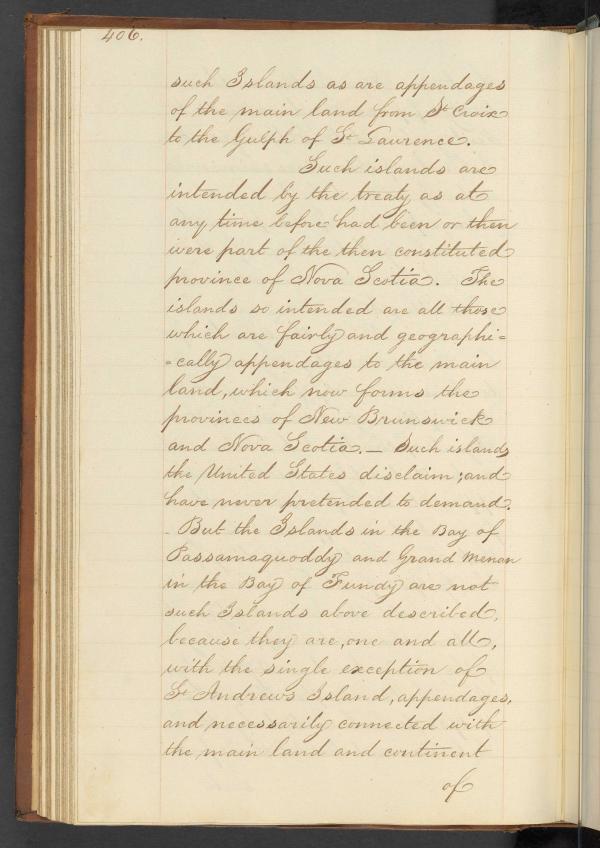 406.
such Islands as are appendages
of the main land from St Croix
to the Gulph of St Laurence.
Such islands are
intended by the treaty as at
any time before had been or then
were part of the then constituted
province of Nova Scotia. The
islands so intended are all those
which are fairly and geographi=
=cally appendages to the main
land, which now forms the
provinces of New Brunswick
and Nova Scotia. — Such islands
the United States disclaim; and
have never pretended to demand.
- But the Islands in the Bay of
Passamaquoddy and Grand Menan
in the Bay of Fundy are not
such Islands above described,
because they are, one and all,
with the single exception of
St Andrews Island, appendages,
and necessarily connected with
the main land and continent
of